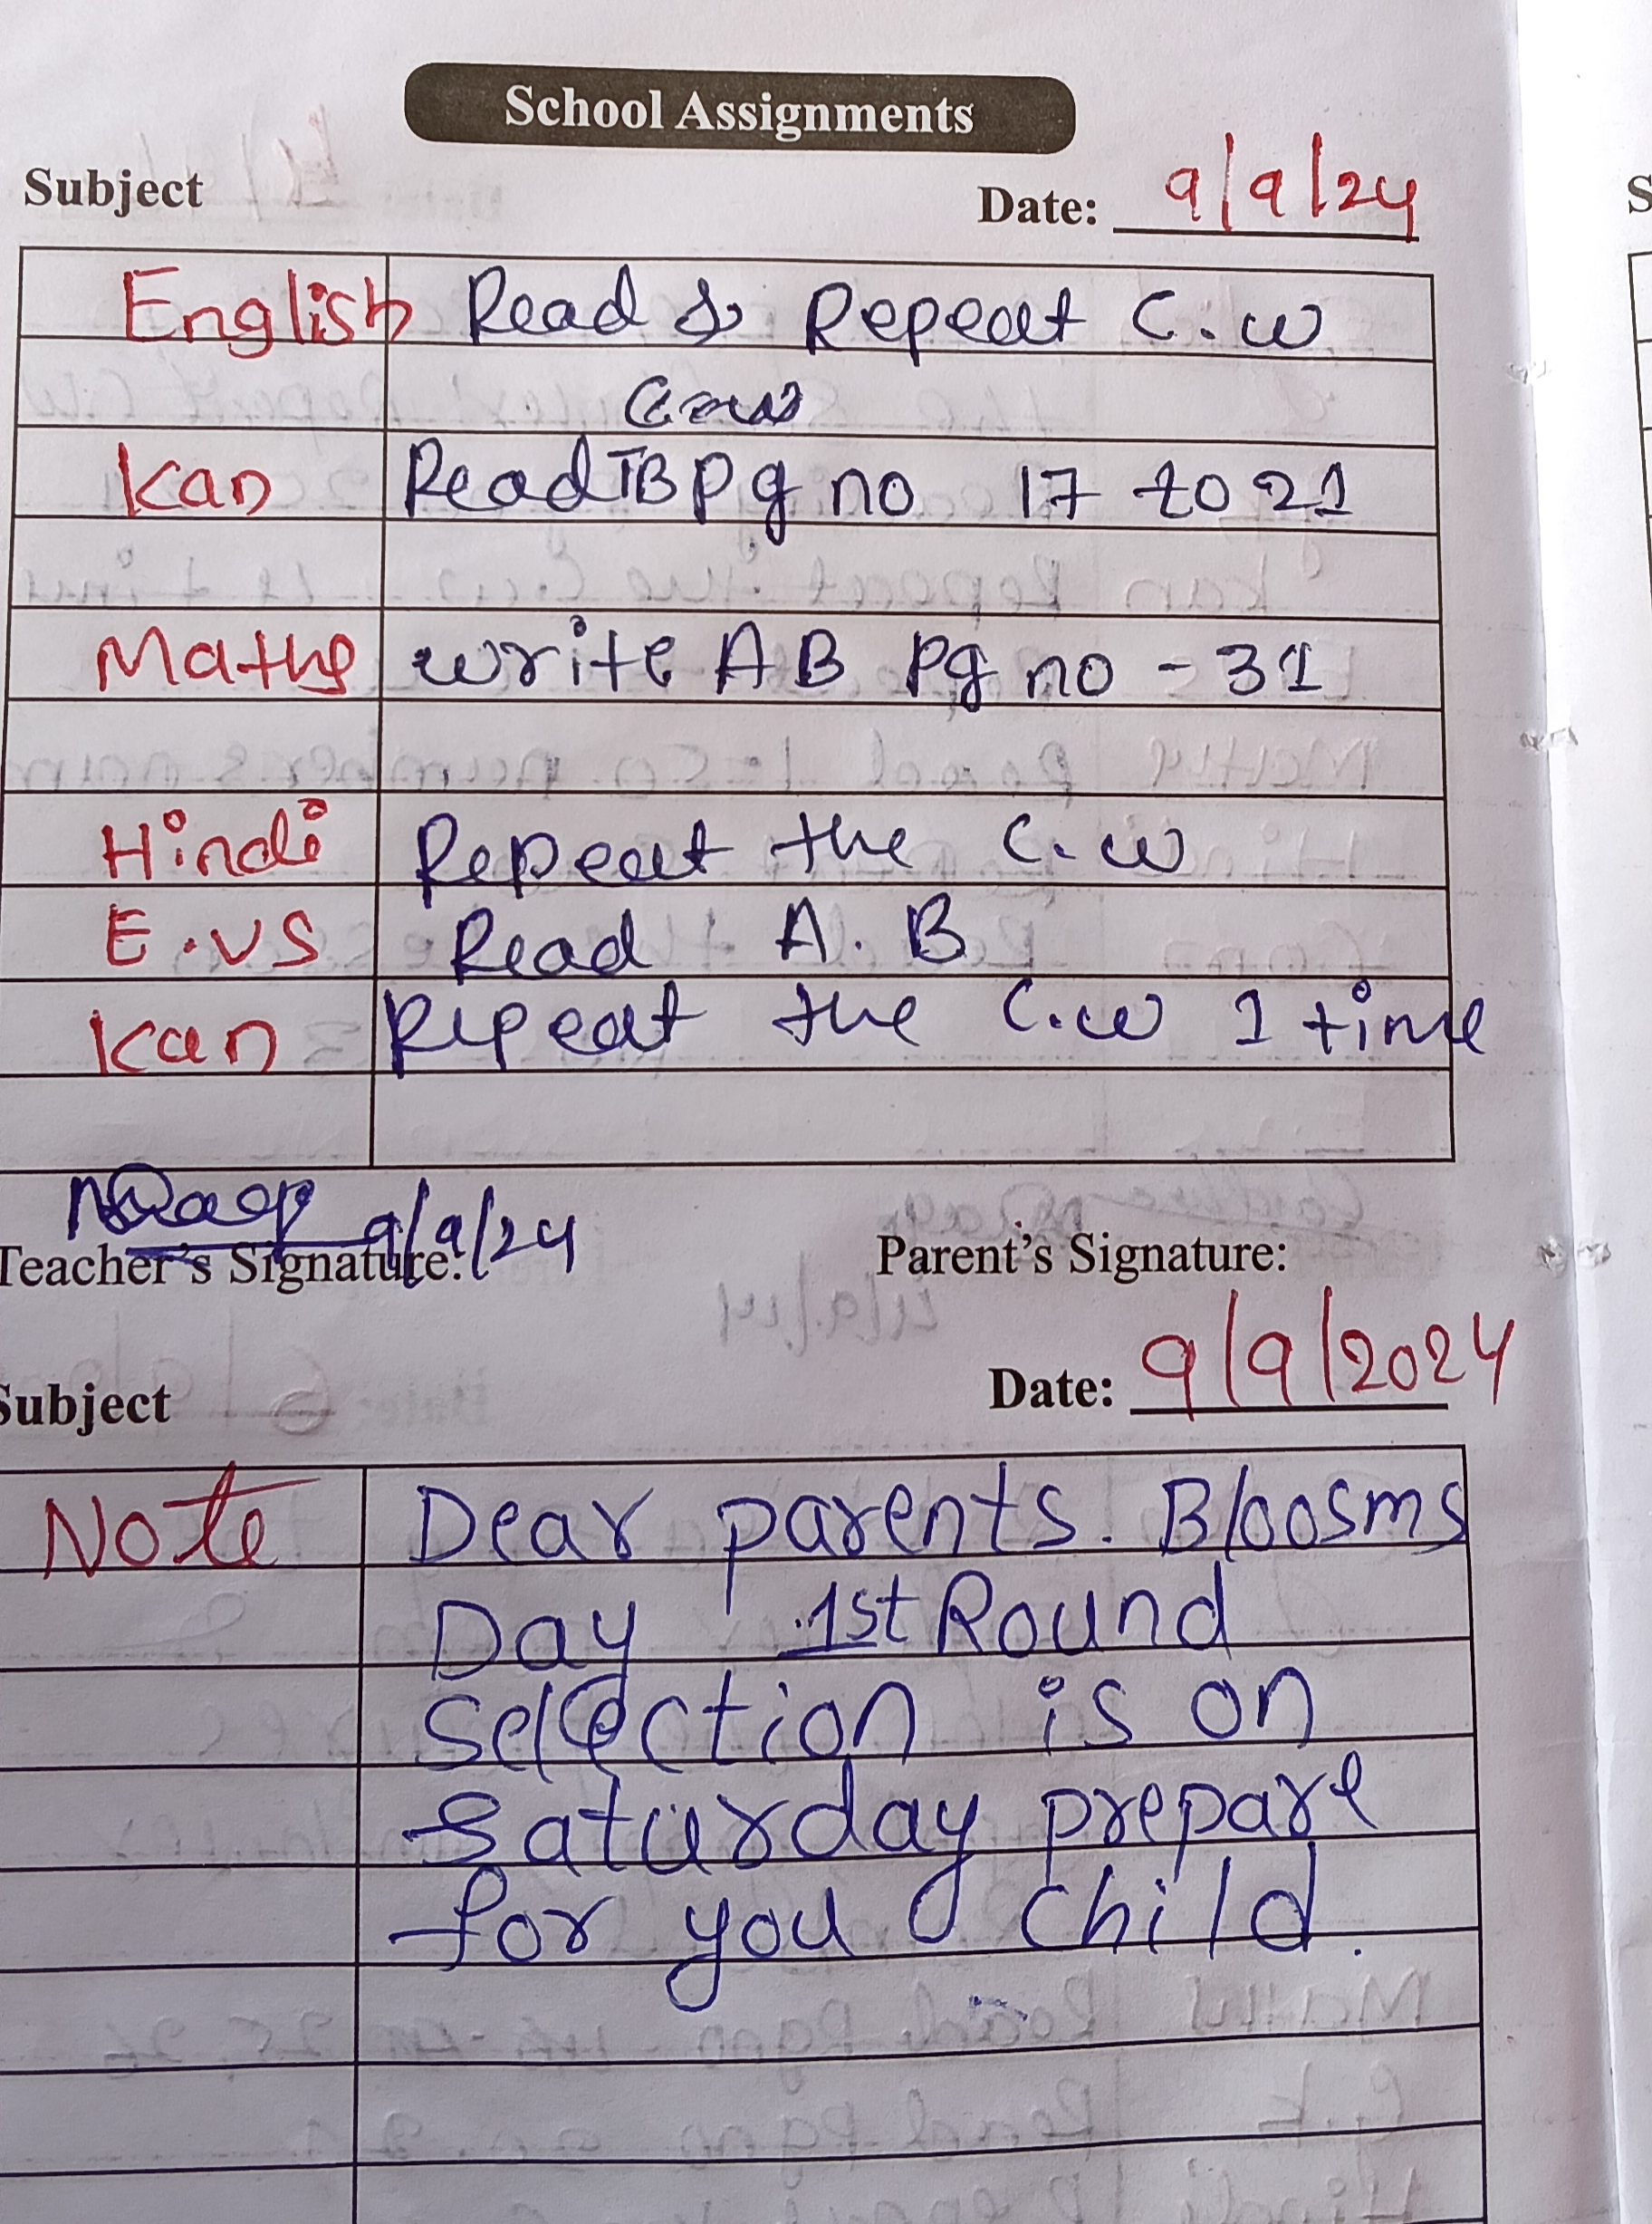 School Assignments
Subject Date: 9/9/24
English Read & Repeat C.w
Kan Read TB Pg no 17 to 21
Maths write AB Pg no - 31
Hindi Repeat the C.w
E.VS Read A.B
Kan Ripeat the C.w 1 time
9/9/24
Teacher's Signature: Parent's Signature:
Subject Date: 9/9/2024
Note Dear parents. Bloosms
Day 1st Round
selection is on
Saturday prepare
for you child.